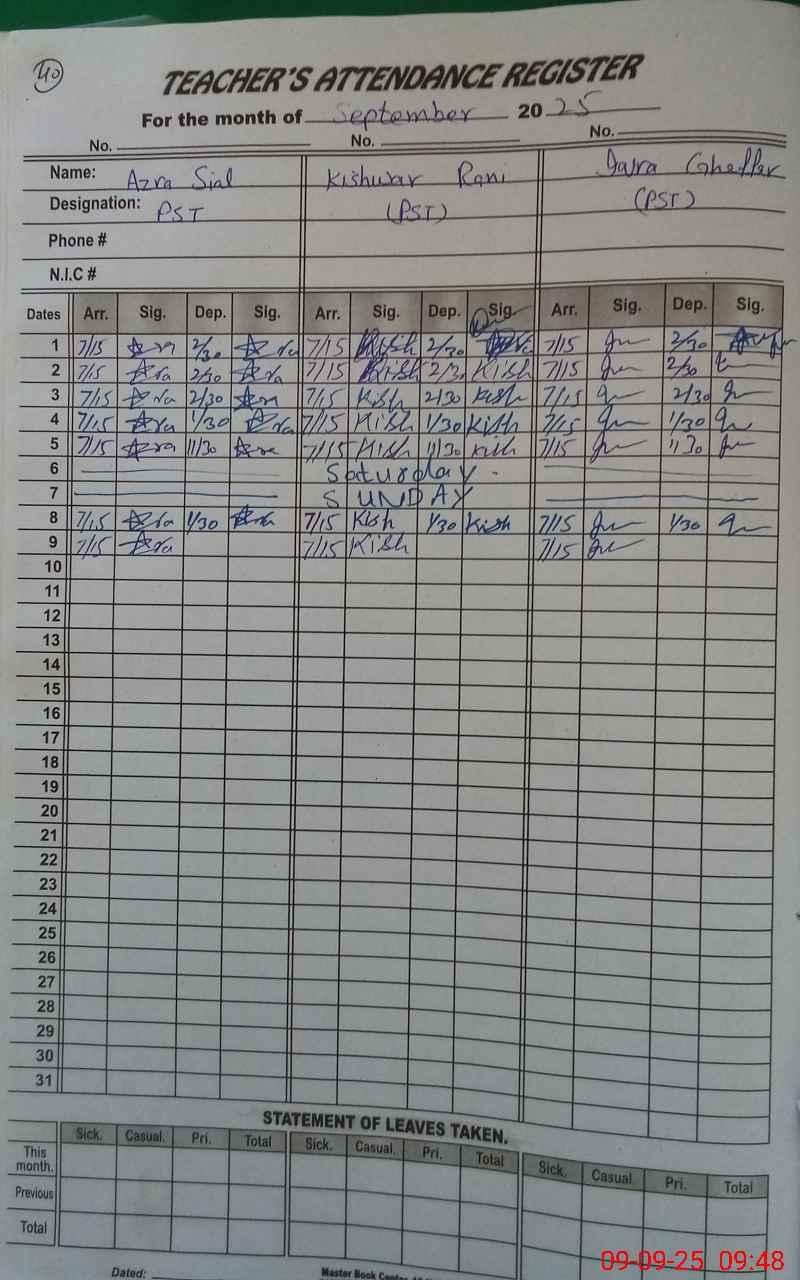 40
TEACHER'S ATTENDANCE REGISTER
For the month of September 2025
No. No. No.
Name: Azra Sial Kishwar Rani
Designation: PST (PST) (PST)
Phone #
N.I.C #
Dates Arr. Sig. Dep. Sig. Arr. Sig. Dep. Sig. Arr. Sig. Dep. Sig.
1 7/15 2/30 7/15 Kish 2/30 7/15 2/30
2 7/15 2/30 7/15 Kish 2/30 Kish 7/15 2/30
3 7/15 2/30 7/15 Kish 2/30 Kish 7/15 2/30
4 7/15 1/30 7/15 Kish 1/30 Kish 7/15 1/30
5 7/15 11/30 7/15 Kish 11/30 Kish 7/15 11/30
6 Saturday
7 SUNDAY
8 7/15 1/30 7/15 Kish 1/30 Kish 7/15 1/30
9 7/15 7/15 Kish 7/15
10
11
12
13
14
15
16
17
18
19
20
21
22
23
24
25
26
27
28
29
30
31
STATEMENT OF LEAVES TAKEN.
Sick. Casual. Pri. Total Sick. Casual. Pri. Total Sick. Casual. Pri. Total
This month.
Previous
Total
Dated:
Master Book Center
09-09-25 09:48